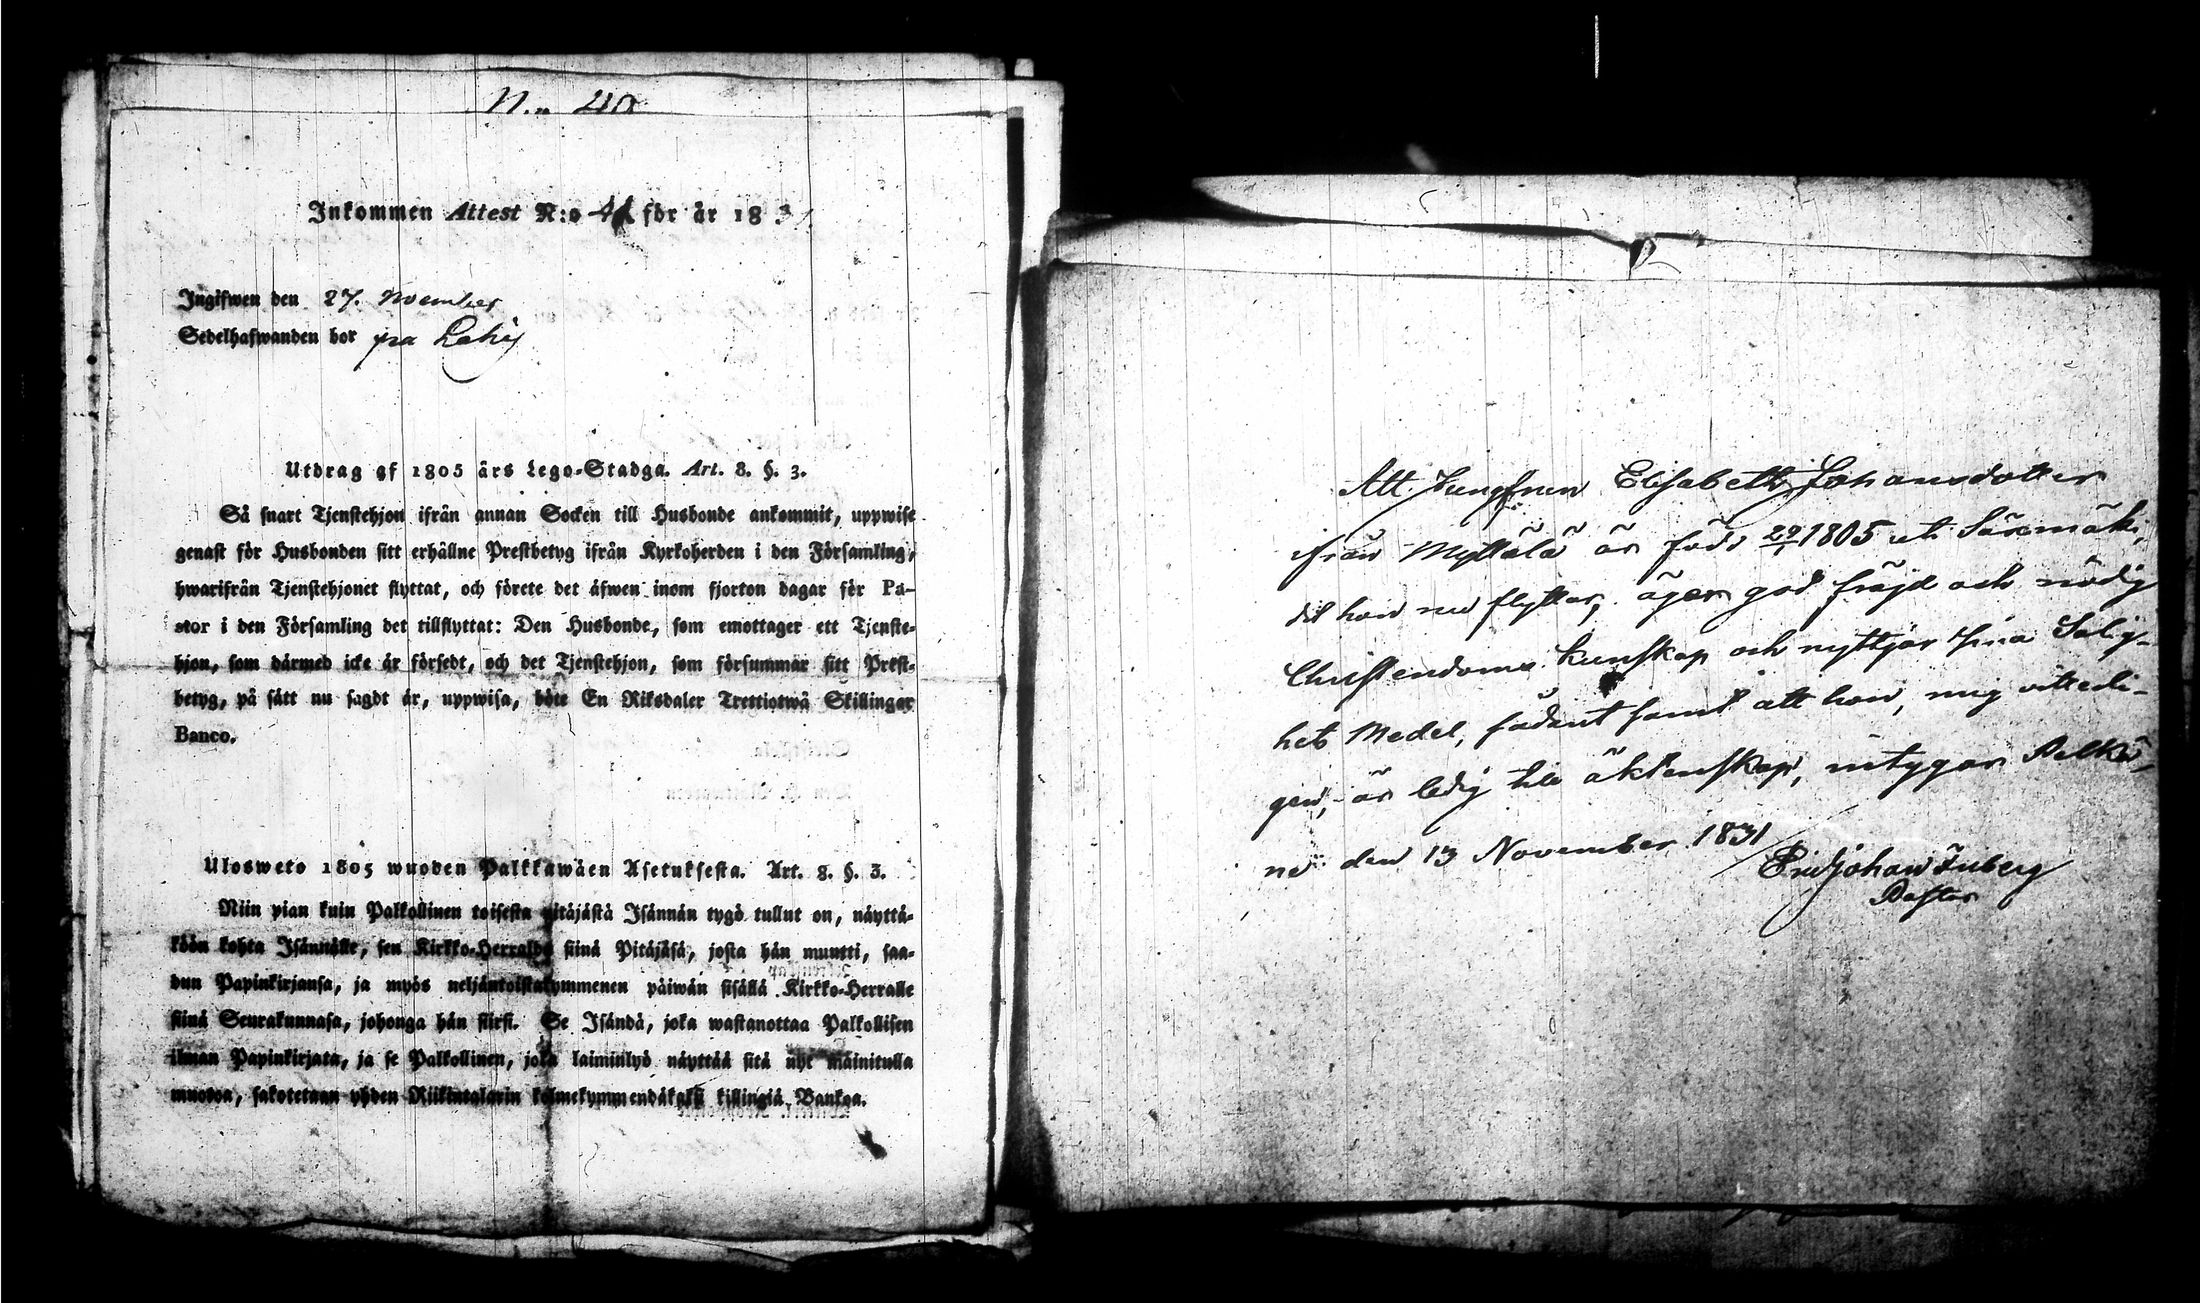 N:o 40
Inkommen Attest N:o 41 för år 1831.
Ingifwen den 27. November
Sedelhafwanden bor på
Utdrag af 1805 års Lego-Stadga. Art. 8. §. 3.
Så snart Tjenstehjon ifrån annan Socken till Husbonde ankommit, uppwise
genast för Husbonden sitt erhållne Prestbetyg ifrån Kyrkoherden i den Församling,
hwarifrån Tjenstehjonet flyttat, och förete det äfwen inom fjorton dagar för Pa-
stor i den Församling det tillflyttat: Den Husbonde, som emottager ett Tjenste-
hjon, som därmed icke är försedt, och det Tjenstehjon, som försummar sitt Prest-
betyg, på sätt nu sagdt är, uppwisa, böte En Riksdaler Trettiotwå Skillingar
Banco.
Ulosweto 1805 wuoden Palkkawäen Asetuksesta. Art. 8. §. 3.
Niin pian kuin Palkollinen toisesta pitäjästä Isännän tygö tullut on, näyttä-
köön kohta Isännälle, sen Kirkko-Herralda siinä Pitäjäsä, josta hän muutti, saa-
dun Papinkirjansa, ja myös neljäntoistakymmenen päiwän sisällä Kirkko-Herralle
siinä Seurakunnasa, johonga hän siirsi. Se Isändä, joka wastanottaa Palkollisen
ilman Papinkirjata, ja se Palkollinen, joka laiminlyö näyttää sitä nyt mainitulla
muotoa, sakotetaan yhden Riikintalarin kolmekymmendäkaksi killingiä Bankoa.
Att Jungfrun Elisabeth Johansdotter
ifrån Myttälä är född 29/1 1805 uti Säxmäki,
dit hon nu flyttar, äger god frejd och nödig
Christendoms kunskap och nyttjar sina Salig-
hets Medel, sådant samt att hon, mig vitterli-
gen, är ledig till äktenskap, intygar Pelkä-
ne den 13 November 1831
Eric Johan
Pastor